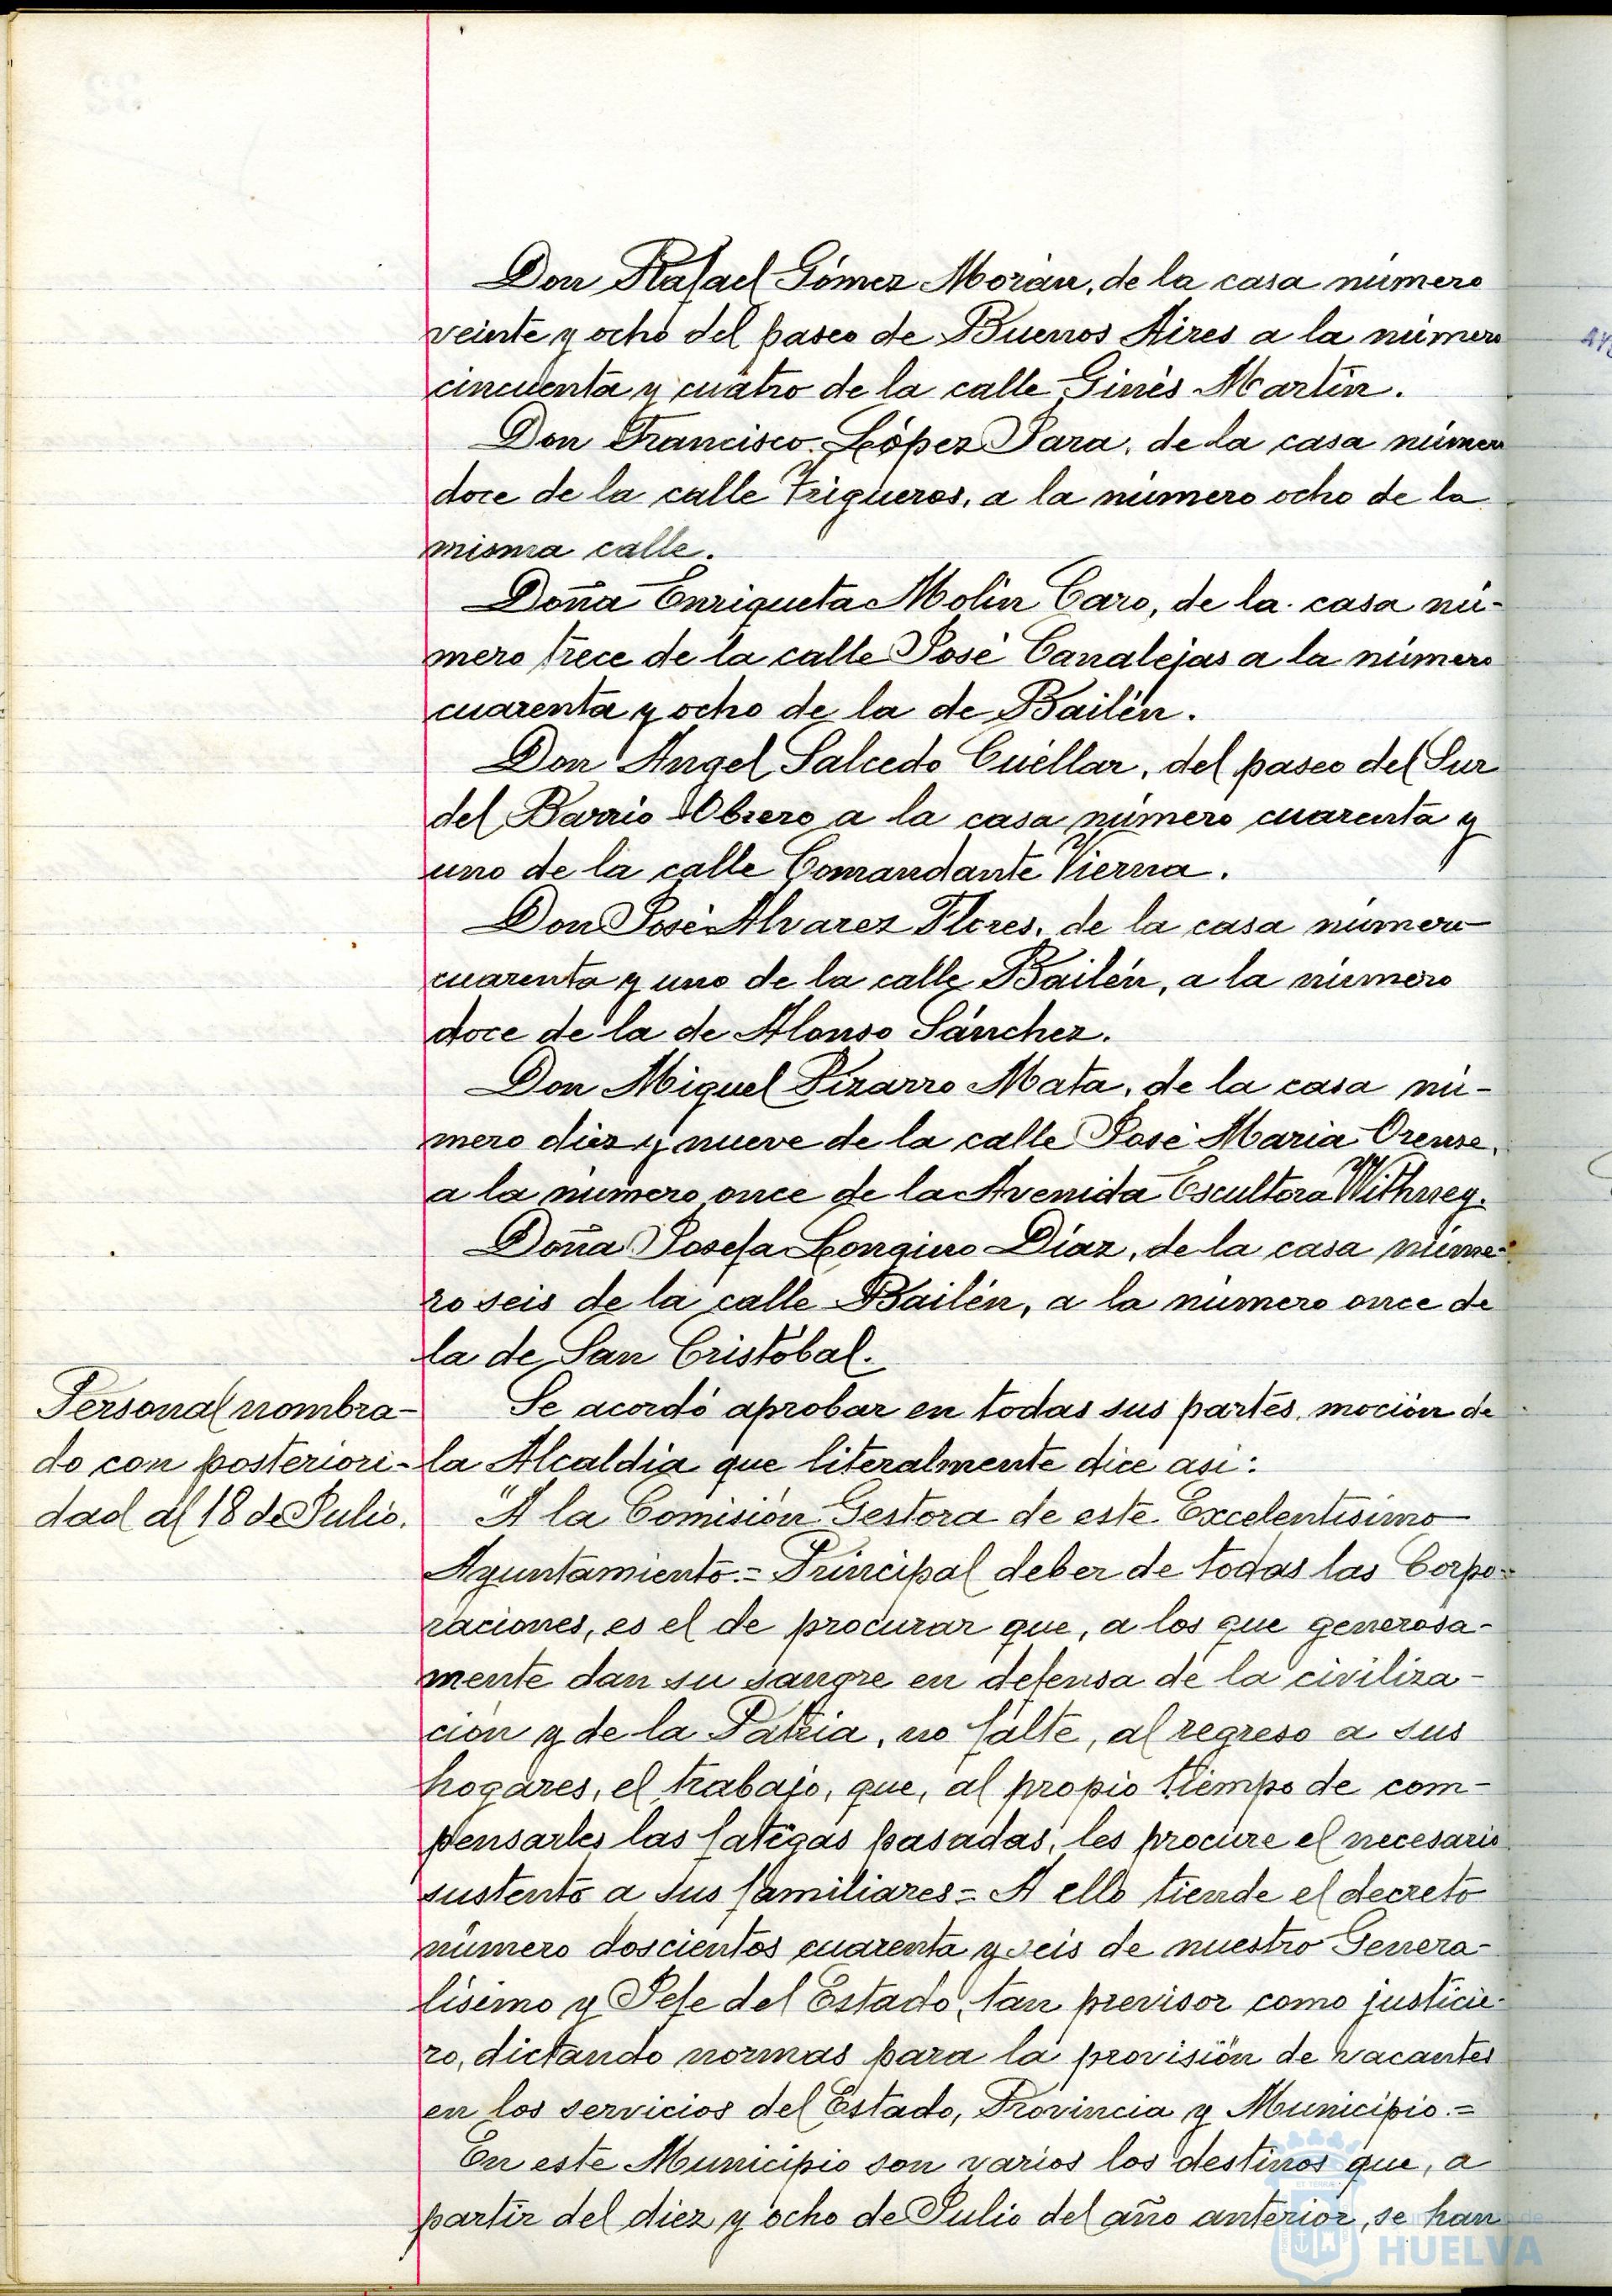 Don Rafael Gómez Morán, de la casa número
veinte y ocho del paseo de Buenos Aires a la número
cincuenta y cuatro de la calle Ginés Martín.
Don Francisco López Para, de la casa número
doce de la calle Trigueros, a la número ocho de la
misma calle.
Doña Enriqueta Molin Caro, de la casa nú-
mero trece de la calle José Canalejas a la número
cuarenta y ocho de la de Bailén.
Don Angel Salcedo Cuéllar, del paseo del Sur
del Barrio Obrero a la casa número cuarenta y
uno de la calle Comandante Vierna.
Don José Alvarez Flores, de la casa número
cuarenta y uno de la calle Bailén, a la número
doce de la de Alonso Sánchez.
Don Miguel Pizarro Mata, de la casa nú-
mero diez y nueve de la calle José Maria Orense,
a la número once de la Avenida Escultora Withney.
Doña Josefa Longino Díaz, de la casa núme-
ro seis de la calle Bailén, a la número once de
la de San Cristóbal.
Personal nombra-
do con posteriori-
dad al 18 de Julio.
Se acordó aprobar en todas sus partes, moción de
la Alcaldía que literalmente dice así:
"A la Comisión Gestora de este Excelentísimo
Ayuntamiento.= Principal deber de todas las Corpo-
raciones, es el de procurar que, a los que generosa-
mente dan su sangre en defensa de la civiliza-
ción y de la Patria, no falte, al regreso a sus
hogares, el trabajo, que, al propio tiempo de com-
pensarles las fatigas pasadas, les procure el necesario
sustento a sus familiares= A ello tiende el decreto
número doscientos cuarenta y seis de nuestro Genera-
lísimo y Jefe del Estado, tan previsor como justicie-
ro, dictando normas para la provisión de vacantes
en los servicios del Estado, Provincia y Municipio.=
En este Municipio son varios los destinos que, a
partir del diez y ocho de Julio del año anterior, se han
HUELVA